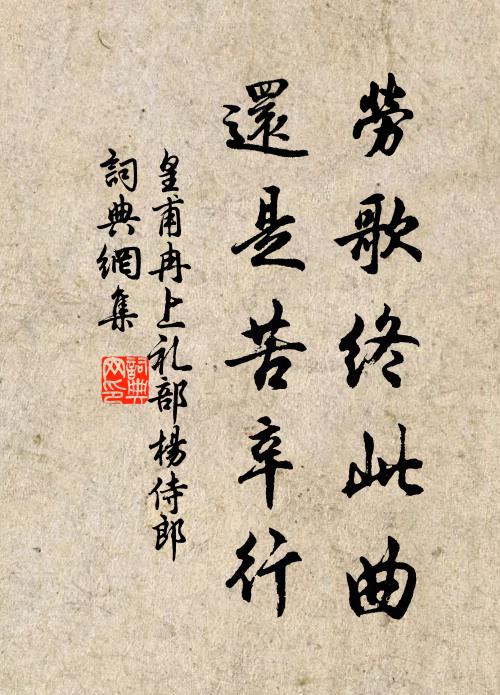 勞歌終此曲
還是苦辛行
皇甫冉上礼部楊侍郎
詞典網集
詞典
网印